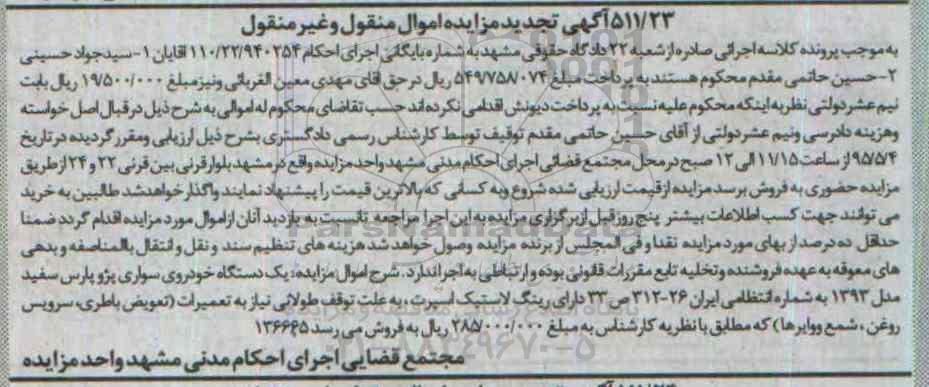 ۵۱۱/۲۳ آگهی تجدید مزایده اموال منقول و غیر منقول
به موجب پرونده کلاسه اجرائی صادره از شعبه ۲۲ دادگاه حقوقی مشهد به شماره بایگانی اجرای احکام ۱۱۰/۲۲/۹۴۰۲۵۴ اقایان ۱-سیدجواد حسینی
۲-حسین حاتمی مقدم محکوم هستند به پرداخت مبلغ ۵۴۹/۷۵۸/۰۷۴ ریال در حق اقای مهدی معین الغربائی ونیزمبلغ ۱۹/۵۰۰/۰۰۰ ریال بابت
نیم عشر دولتی نظر به اینکه محکوم علیه نسبت به پرداخت دیونش اقدامی نکرده اند حسب تقاضای محکوم له اموالی به شرح ذیل در قبال اصل خواسته
وهزینه دادرسی ونیم عشر دولتی از آقای حسین حاتمی مقدم توقیف توسط کارشناس رسمی دادگستری بشرح ذیل ارزیابی ومقرر گردیده در تاریخ
۹۵/۵/۴ از ساعت ۱۱/۱۵ الی ۱۲ صبح در محل مجتمع قضائی اجرای احکام مدنی مشهد واحد مزایده واقع در مشهد بلوار قرنی بین قرنی ۲۲ و ۲۴ از طریق
مزایده حضوری به فروش برسد مزایده از قیمت ارزیابی شده شروع وبه کسانی که بالاترین قیمت را پیشنهاد نمایند واگذار خواهدشد طالبین به خرید
می توانند جهت کسب اطلاعات بیشتر پنج روز قبل از برگزاری مزایده به این اجرا مراجعه تانسبت به بازدید آنان از اموال مورد مزایده اقدام گردد ضمنا
حداقل ده درصد از بهای مورد مزایده نقدا و فی المجلس از برنده مزایده وصول خواهد شد هزینه های تنظیم سند و نقل و انتقال بالمناصفه و بدهی
های معوقه به عهده فروشنده و تخلیه تابع مقررات قانونی بوده و ارتباطی به اجرا ندارد. شرح اموال مزایده: یک دستگاه خودروی سواری پژو پارس سفید
مدل ۱۳۹۳ به شماره انتظامی ایران ۲۶-۳۱۲ ص ۳۳ دارای رینگ لاستیک اسپرت، به علت توقف طولانی نیاز به تعمیرات (تعویض باطری، سرویس
روغن، شمع ووایرها) که مطابق با نظریه کارشناس به مبلغ ۲۸۵/۰۰۰/۰۰۰ ریال به فروش می رسد ۱۳۶۶۴۵
مجتمع قضایی اجرای احکام مدنی مشهد واحد مزایده